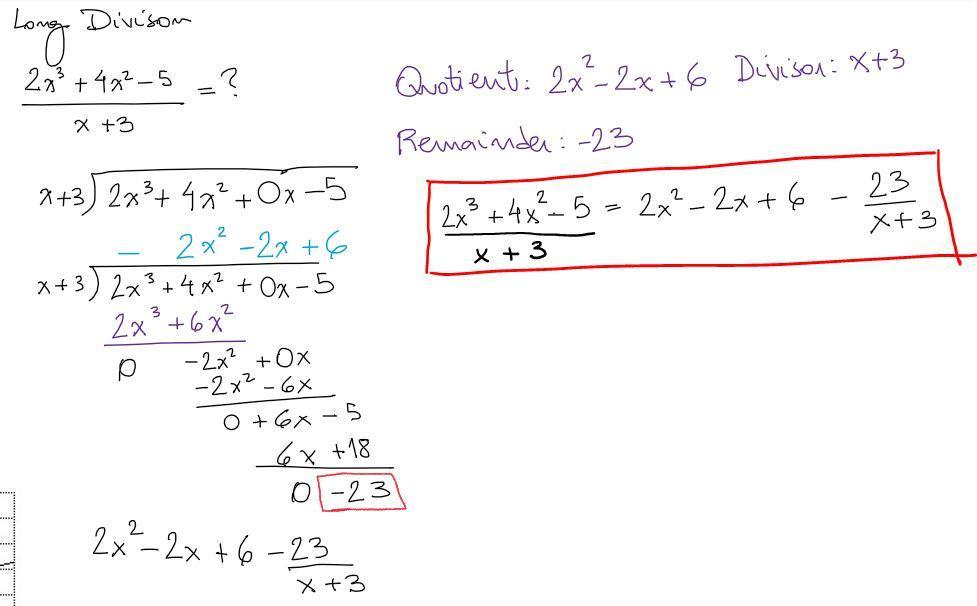 Long Divison
2x³ + 4x² - 5 = ?
x + 3
x+3) 2x³ + 4x² + 0x - 5
- 2x² - 2x + 6
x+3) 2x³ + 4x² + 0x - 5
2x³ + 6x²
0 -2x² + 0x
-2x² - 6x
0 + 6x - 5
6x + 18
0 -23
2x² - 2x + 6 - 23
x + 3
Quotient: 2x² - 2x + 6 Divisor: x+3
Remainder: -23
2x³ + 4x² - 5 = 2x² - 2x + 6 - 23
x + 3 x + 3